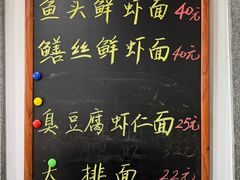 鱼头鲜虾面 40元
鳝丝鲜虾面 40元
臭豆腐虾仁面 25元
32元
大排面 22元